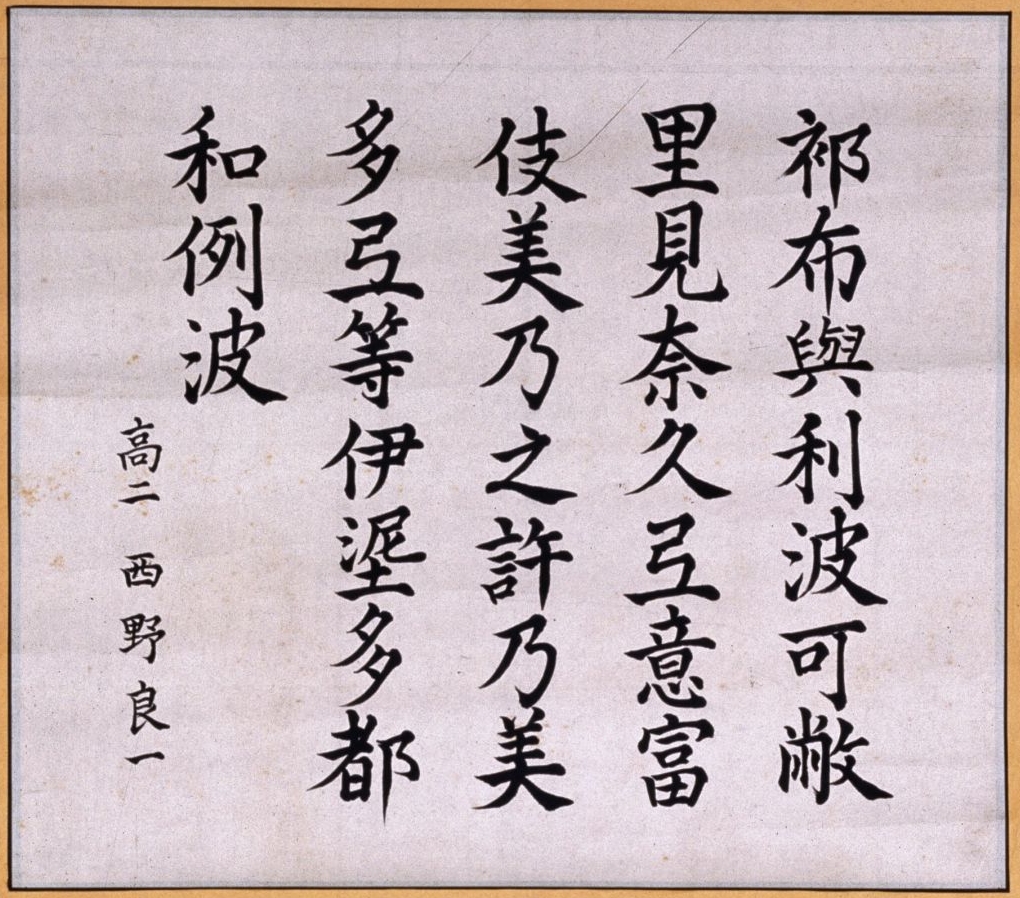 祁布與利波可敝
里見奈久弖意富
伎美乃之許乃美
多弖等伊埿多都
和例波
高二 西野良一